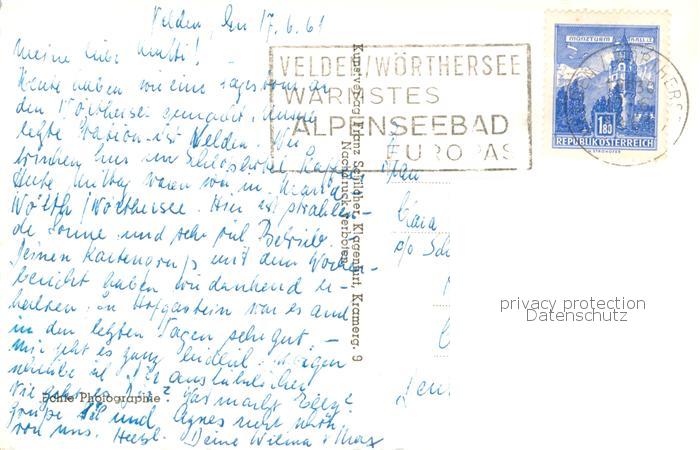 Velden, den 17.6.61
Meine liebe Mutti!
Heute haben wir eine Tagestour an
den Wörthersee gemacht. Unsere
letzte Station ist Velden. Wir
trinken hier im Schlosshotel Kaffee.
Heute Mittag waren wir in Maria
Wörth/Wörthersee. Hier ist strahlen-
de Sonne und sehr viel Betrieb.
Deinen Kartengruß mit dem Wochen-
bericht haben wir dankend er-
halten. In Hofgastein war es auch
in den letzten Tagen sehr gut. –
Mir geht es ganz
schreibe ich Dir ausführlicher.
Wie geht es Dir? Was macht
Grüße und Agnes recht
von uns. Herzl. Deine Wilma + Max
Echte Photographie
Kunstverlag Franz Schilcher, Klagenfurt, Kramerg. 9
Nachdruck verboten
VELDEN/WÖRTHERSEE
WÄRMSTES
ALPENSEEBAD
EUROPAS
MÜNZTURM
HALL I.T.
1.80
REPUBLIK ÖSTERREICH
Frau
Clara
c/o Sch
privacy protection
Datenschutz